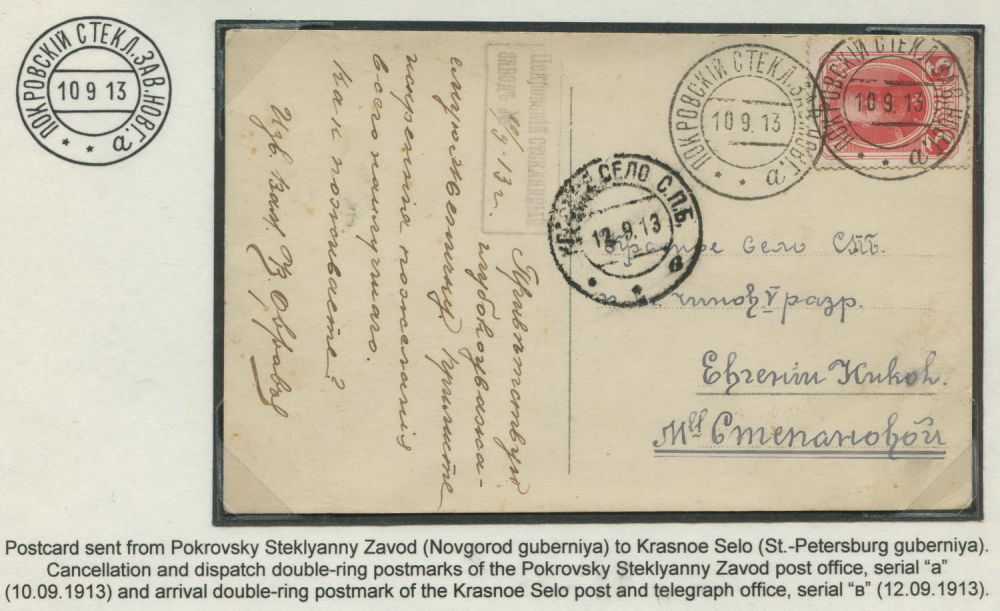 ПОКРОВСКIЙ СТЕКЛ.ЗАВ.НОВГ.
10 9 13
а
ПОКРОВСКIЙ СТЕКЛ.ЗАВ.НОВГ.
10 9. 13
а
ПОКРОВСКIЙ СТЕКЛ.ЗАВ.НОВГ.
10 9. 13
а
3
СЕЛО С.П.Б.
12.9.13
в
10/9-13 г.
Привѣтствую
глубокоуважа-
емую Евгенiю примите
искреннiя пожеланiя
всего наилучшаго.
Как поживаете?
Красное село СПб.
V разр.
Евгенiи Никол.
М-ll Степановой
Postcard sent from Pokrovsky Steklyanny Zavod (Novgorod guberniya) to Krasnoe Selo (St.-Petersburg guberniya).
Cancellation and dispatch double-ring postmarks of the Pokrovsky Steklyanny Zavod post office, serial "a"
(10.09.1913) and arrival double-ring postmark of the Krasnoe Selo post and telegraph office, serial "в" (12.09.1913).